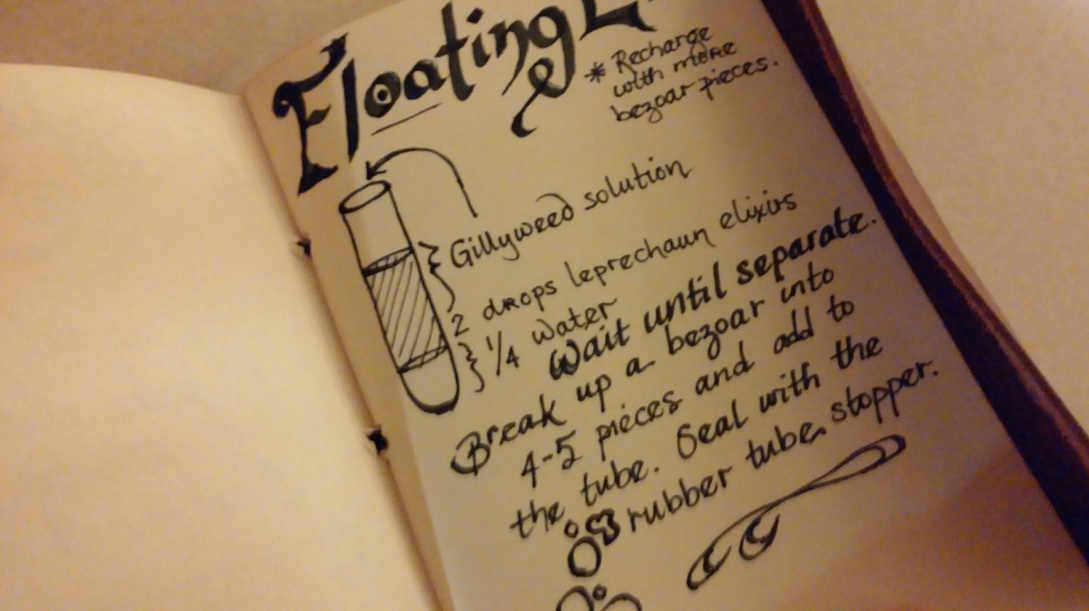 Floating
* Recharge
with more
bezoar pieces.
Gillyweed solution
2 drops leprechaun elixirs
1/4 water
Wait until separate.
Break up a bezoar into
4-5 pieces and add to
the tube. Seal with the
rubber tube stopper.